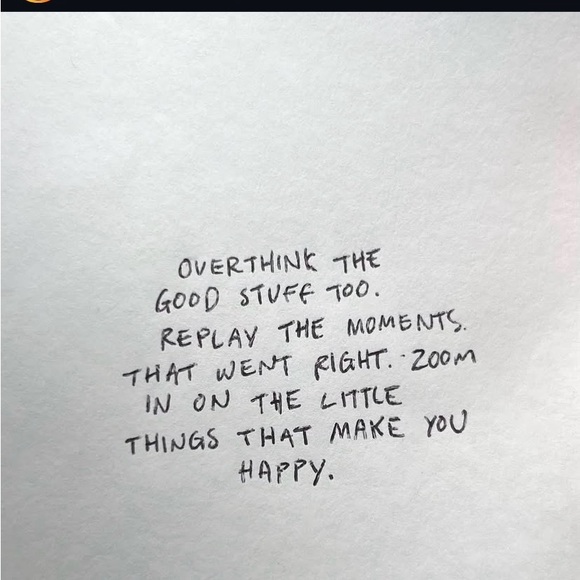 OVERTHINK THE
GOOD STUFF TOO.
REPLAY THE MOMENTS.
THAT WENT RIGHT. ZOOM
IN ON THE LITTLE
THINGS THAT MAKE YOU
HAPPY.